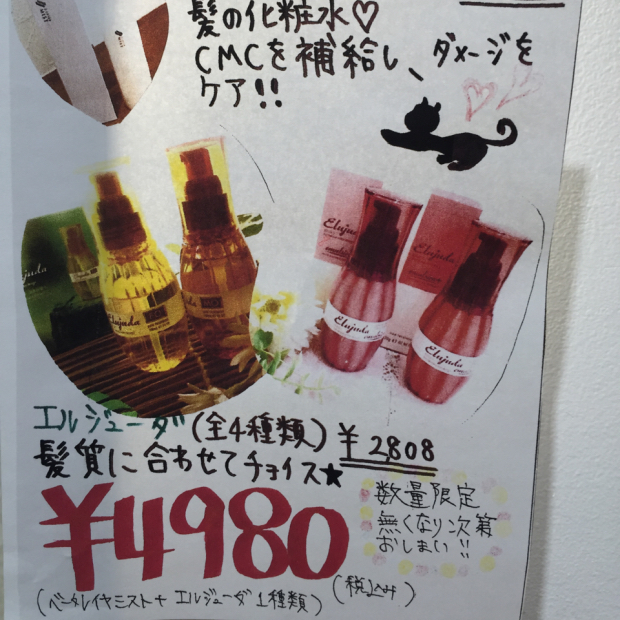 髪の化粧水♡
CMCを補給し、ダメージを
ケア!!
Elujuda
Elujuda
Elujuda
Elujuda
エルジューダ(全4種類) ¥2808
髪質に合わせてチョイス★
¥4980
(税込み)
数量限定
無くなり次第
おしまい!!
(ベータレイヤミスト+エルジューダ1種類)